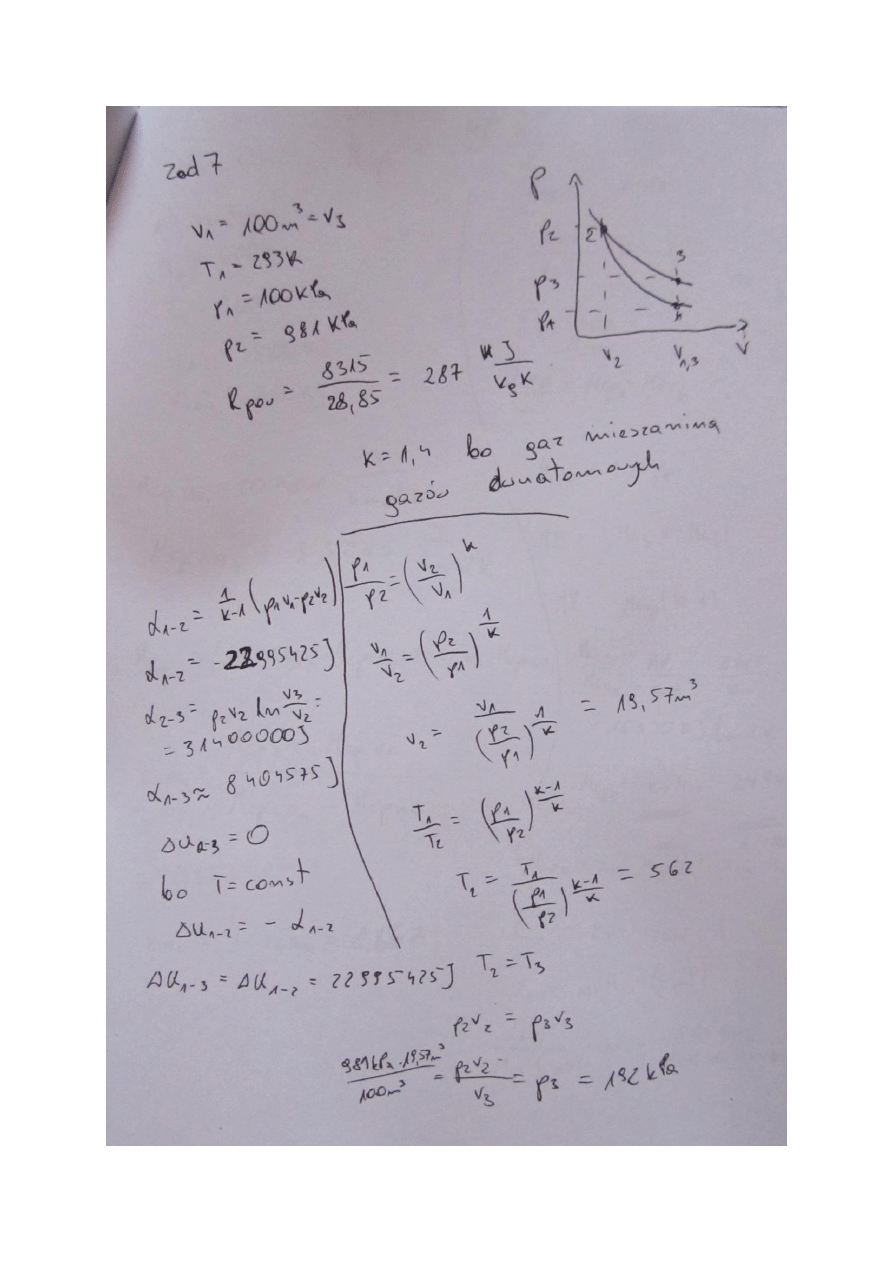 zad 7
V₁ = 100 m³ = V₃
T₁ = 293K
p₁ = 100kPa
p₂ = 981 kPa
Rpow = 8315/28,85 = 287 kJ/kgK
P
p₂
p₃
p₁
2
3
1
V₂ V₁,₃ V
k = 1,4 bo gaz mieszaniną
gazów dwuatomowych
L₁₋₂ = 1/(k-1) (p₁V₁-p₂V₂)
L₁₋₂ = -22995425 J
L₂₋₃ = p₂V₂ ln V₃/V₂ =
= 31400000 J
L₁₋₃ ≈ 8404575 J
ΔU₂₋₃ = 0
bo T = const
ΔU₁₋₂ = - L₁₋₂
ΔU₁₋₃ = ΔU₁₋₂ = 22995425 J
p₁/p₂ = (V₂/V₁)^k
V₁/V₂ = (p₂/p₁)^(1/k)
V₂ = V₁/(p₂/p₁)^(1/k) = 19,57 m³
T₁/T₂ = (p₁/p₂)^((k-1)/k)
T₂ = T₁/(p₁/p₂)^((k-1)/k) = 562
T₂ = T₃
p₂V₂ = p₃V₃
981kPa · 19,57m³/100m³ = p₂V₂/V₃ = p₃ = 192 kPa